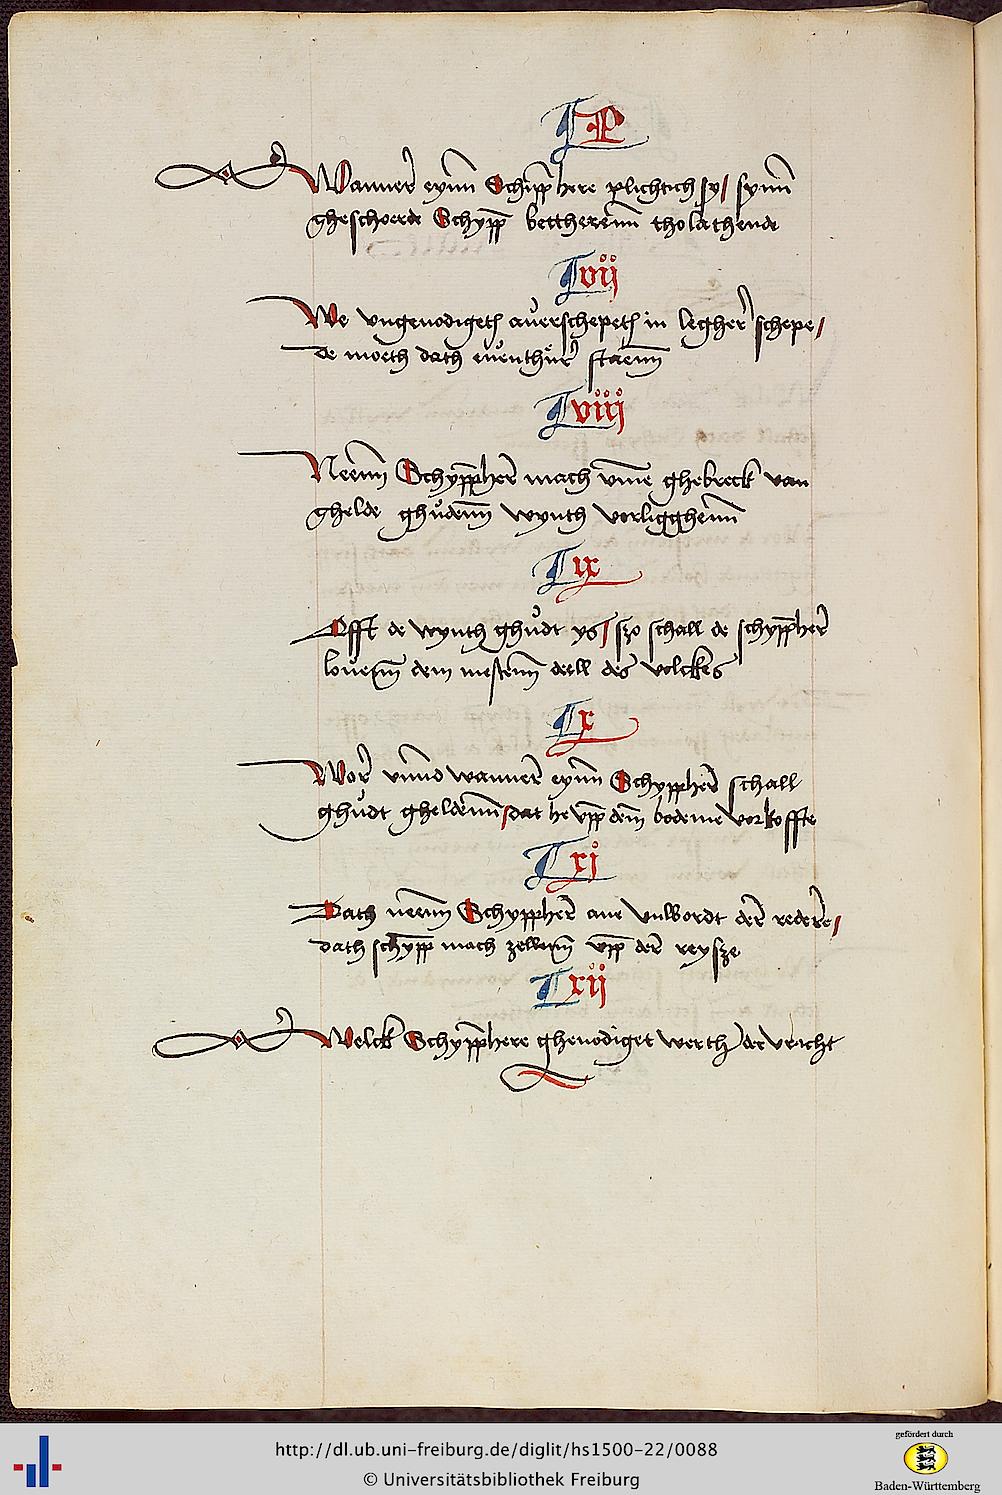 P
Wanner eynn Schipphere plichtich sy / synn
gheschoerde Schypp bettherenn tho lathende
vij
We vngenodigeth auerschepeth in legher schepe /
de moeth dath euenthur staenn
viij
Neenn Schyppher mach vmme ghebreck van
ghelde ghudenn wynth vorligghenn
ix
Efft de wynth ghudt ys / szo schall de schyppher
louenn dem mestenn deell des volckes
x
Wor vnnd wanner eynn Schyppher schall
ghudt gheldenn / dat he vpp dem bodeme vorkoffte
xj
Dath neenn Schyppher ane vulbordt der redere /
dath schypp mach zellenn vpp der reysze
xij
Welck Schypphere ghenodiget werth der vracht
http://dl.ub.uni-freiburg.de/diglit/hs1500-22/0088
© Universitätsbibliothek Freiburg
gefördert durch
Baden-Württemberg